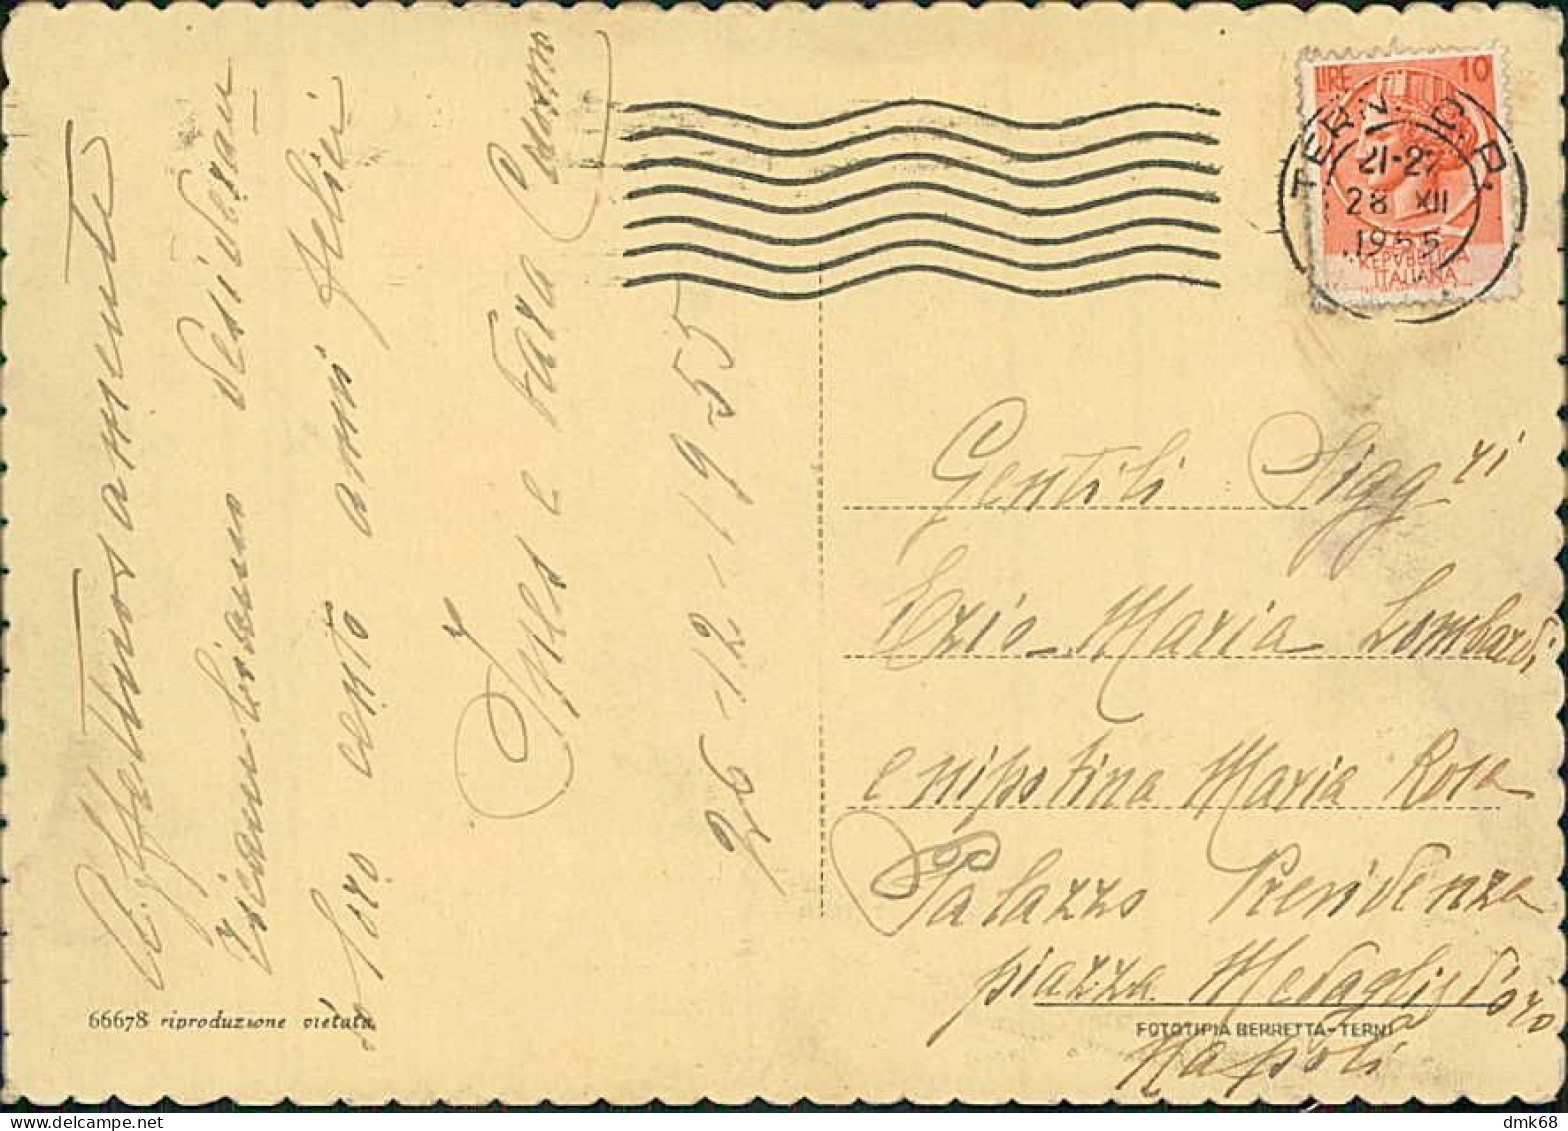 Affettuosamente
ricambiamo desideran
do loro cento anni felici
Ines e Sara
26-12-1955
LIRE 10
TERNI C.P.
21-22
28 XII
1955
REPVBBLICA
ITALIANA
Gentili Sigg.ri
Ezio-Maria Lombardi
e nipotina Maria Rosa
Palazzo Previdenza
piazza Medaglie d'oro
Napoli
66678 riproduzione vietata
FOTOTIPIA BERRETTA-TERNI
dmk68